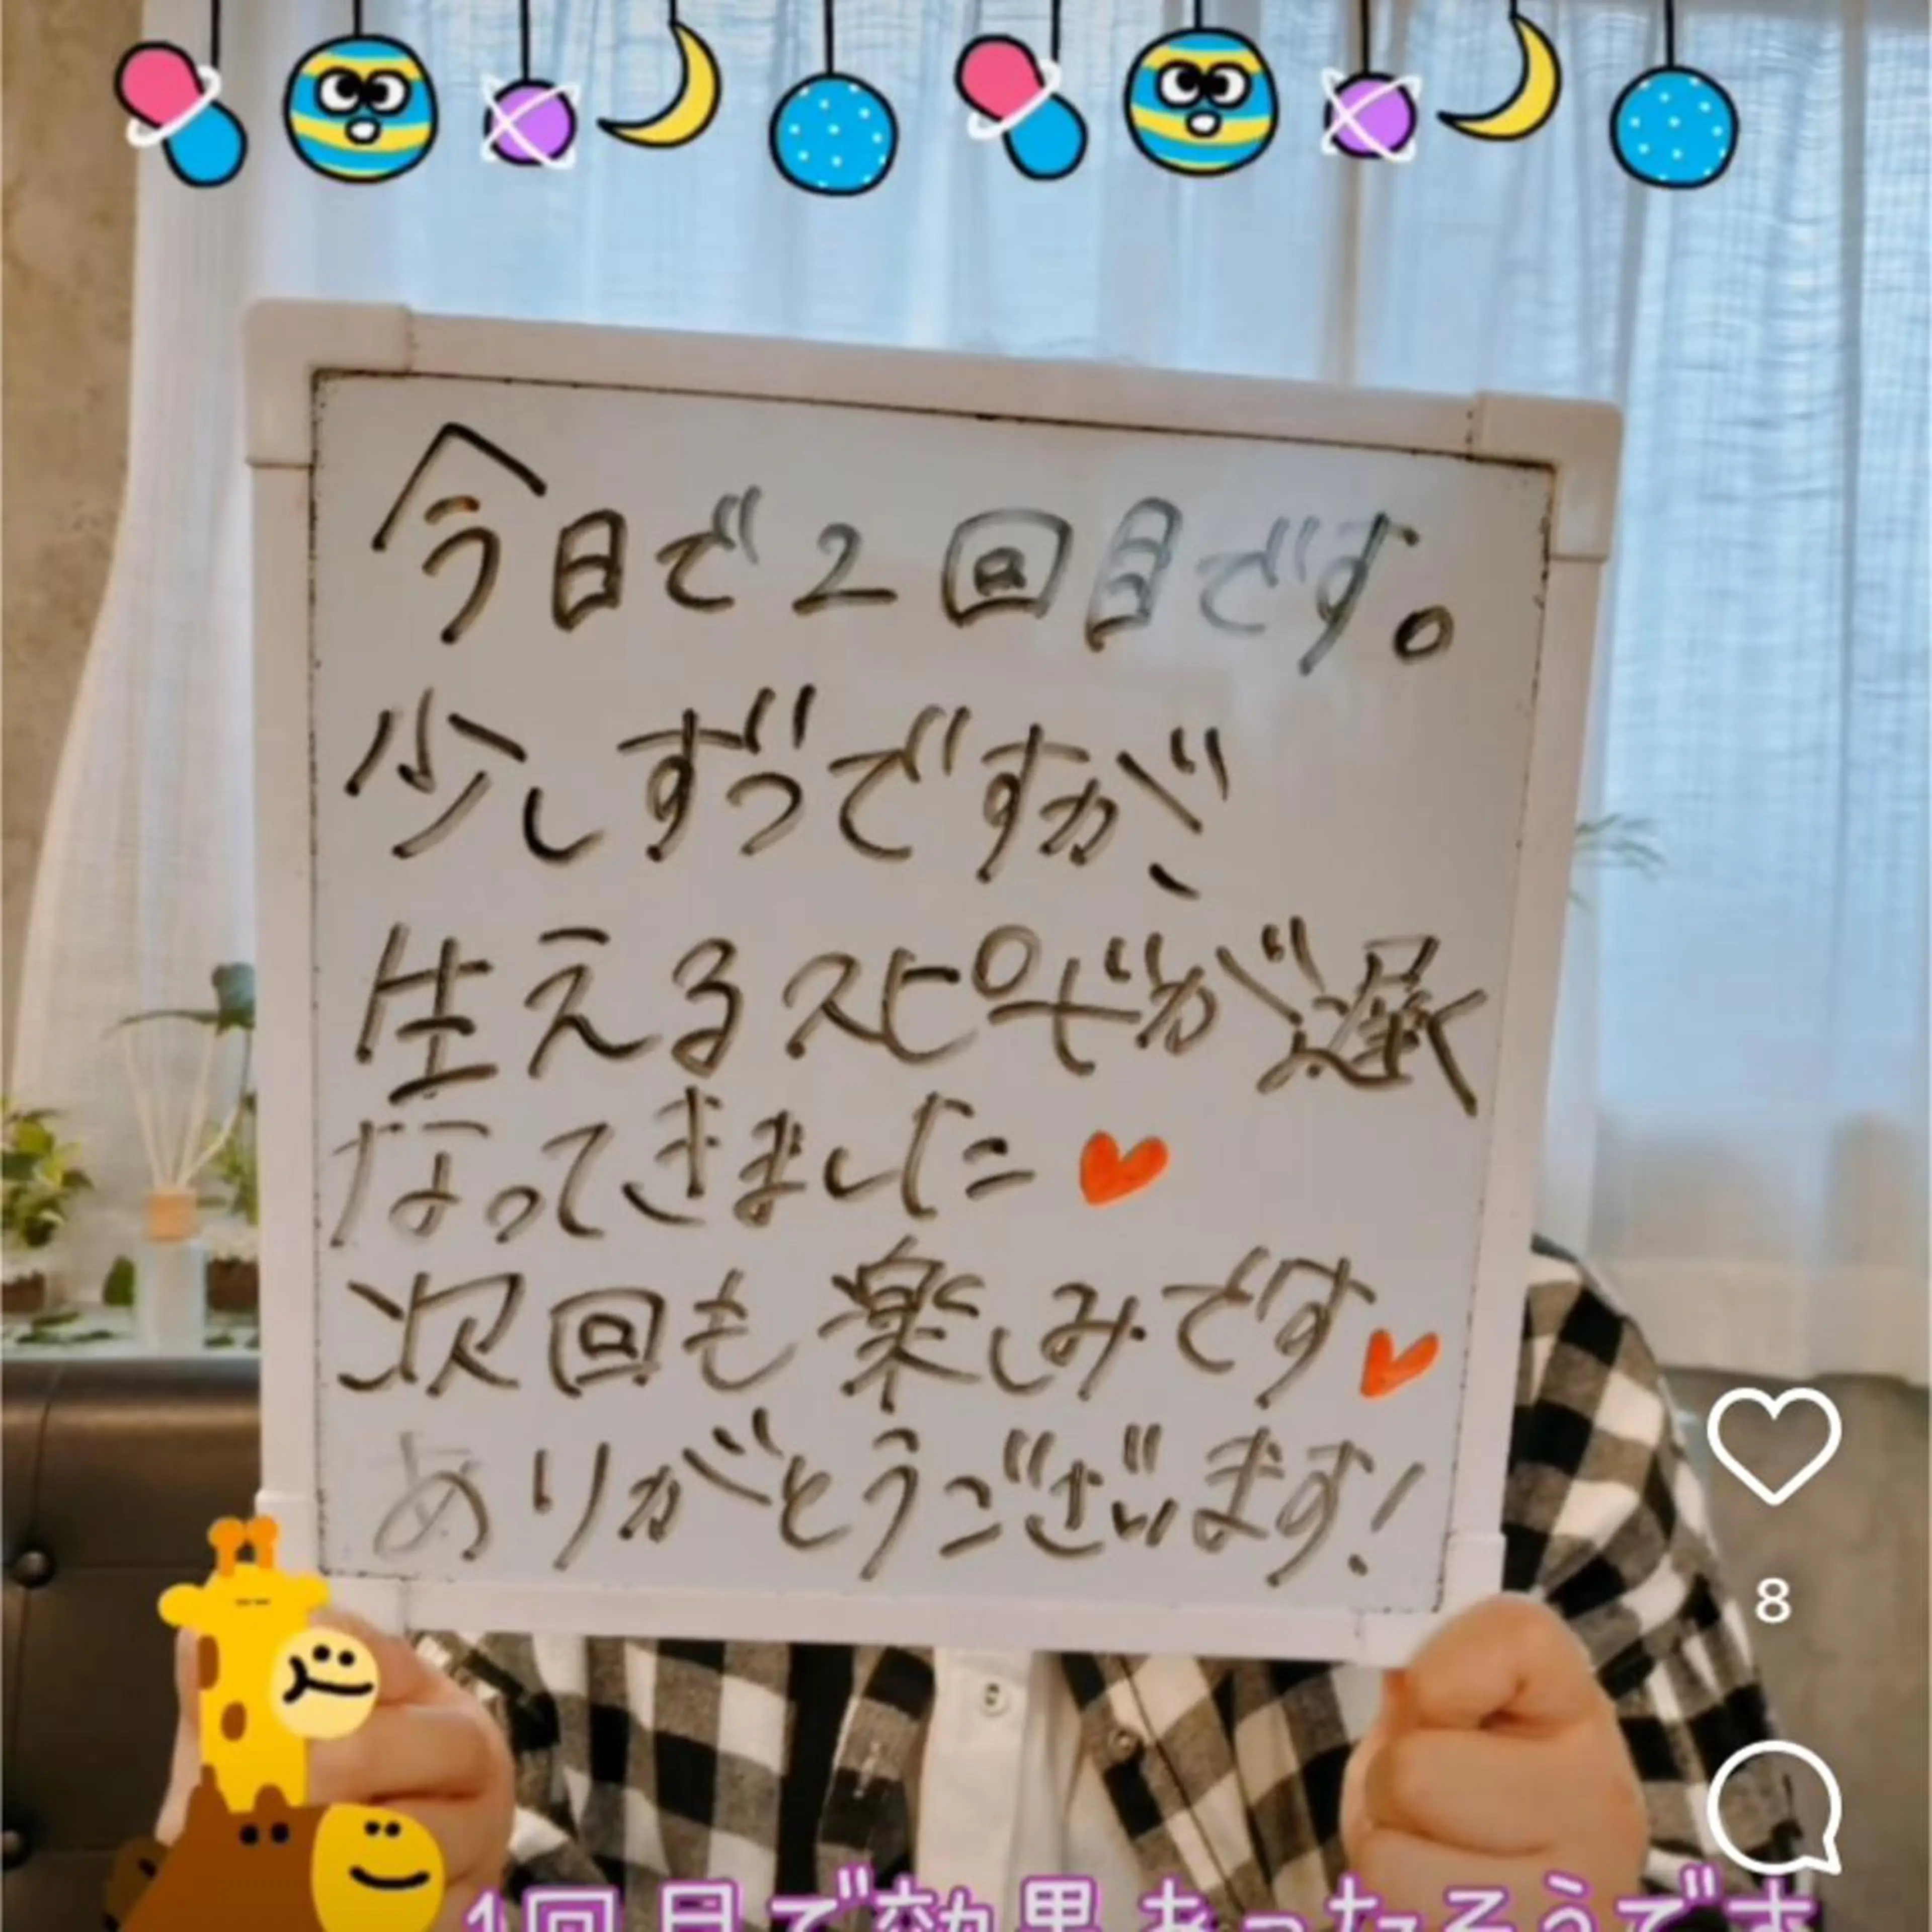 今日で2回目です。
少しずつですが、
生えるスピードが遅く
なってきました♥
次回も楽しみです♥
ありがとうございます!
8
1回目で効果あったそうです